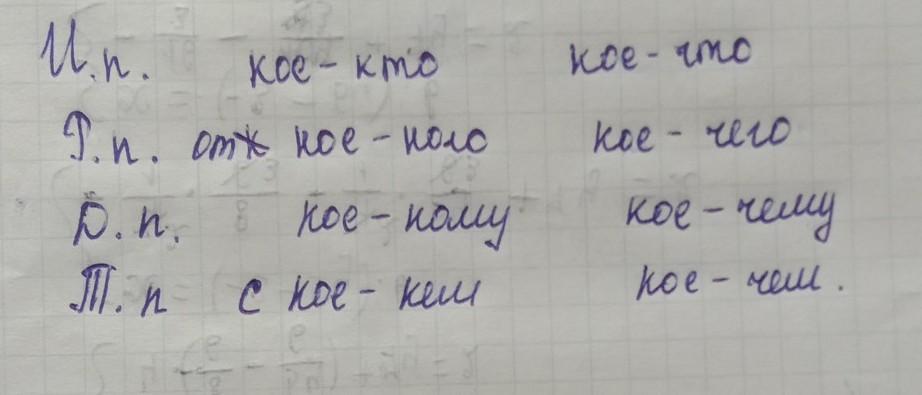 И.п. кое-кто кое-что
Р.п. от кое-кого кое-чего
Д.п. кое-кому кое-чему
Т.п с кое-кем кое-чем.